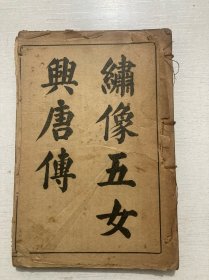 繡像五女
興唐傳